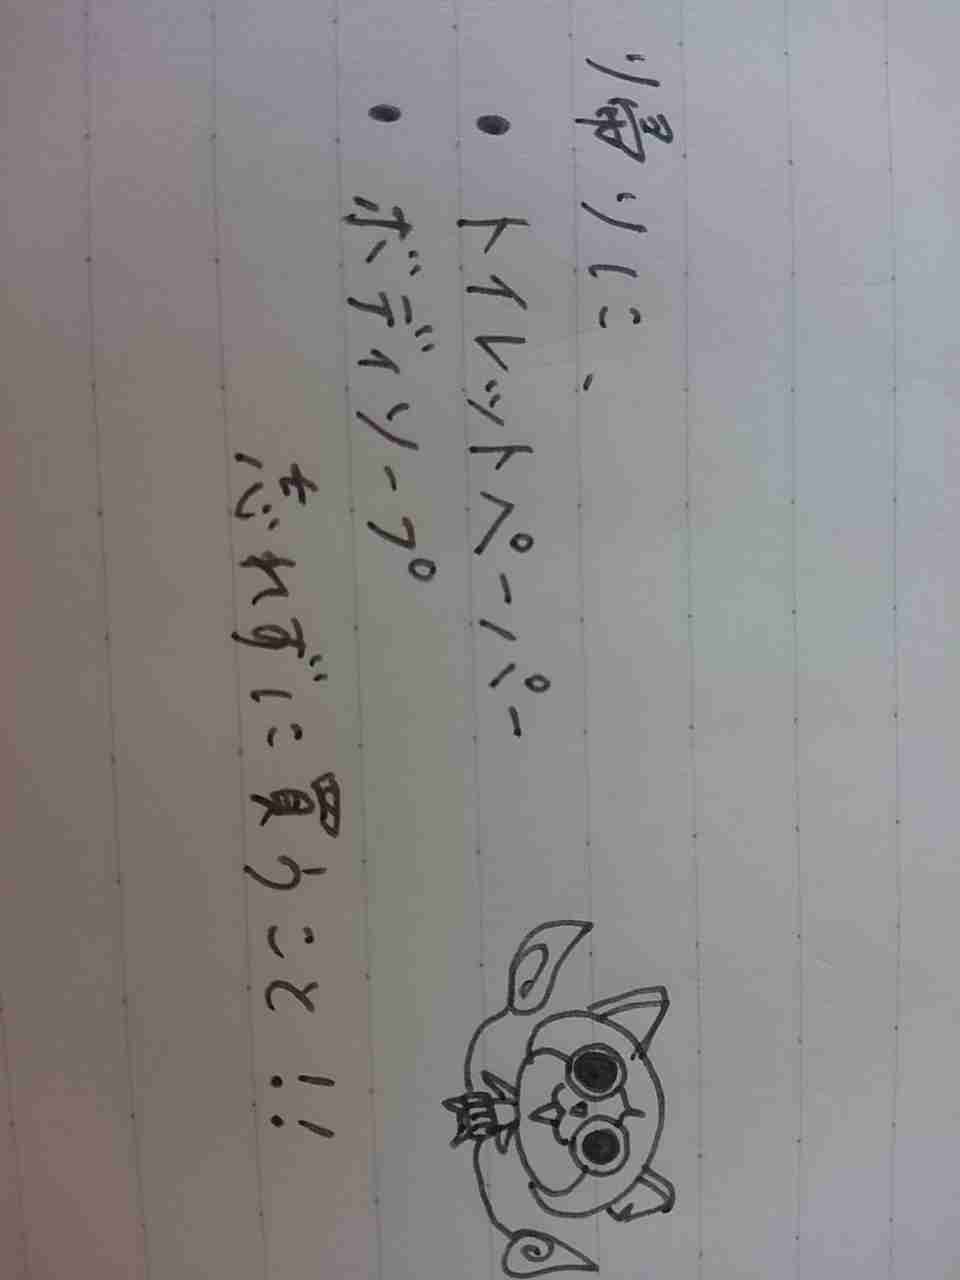 帰りに、
• トイレットペーパー
• ボディソープ
忘れずに買うこと!!